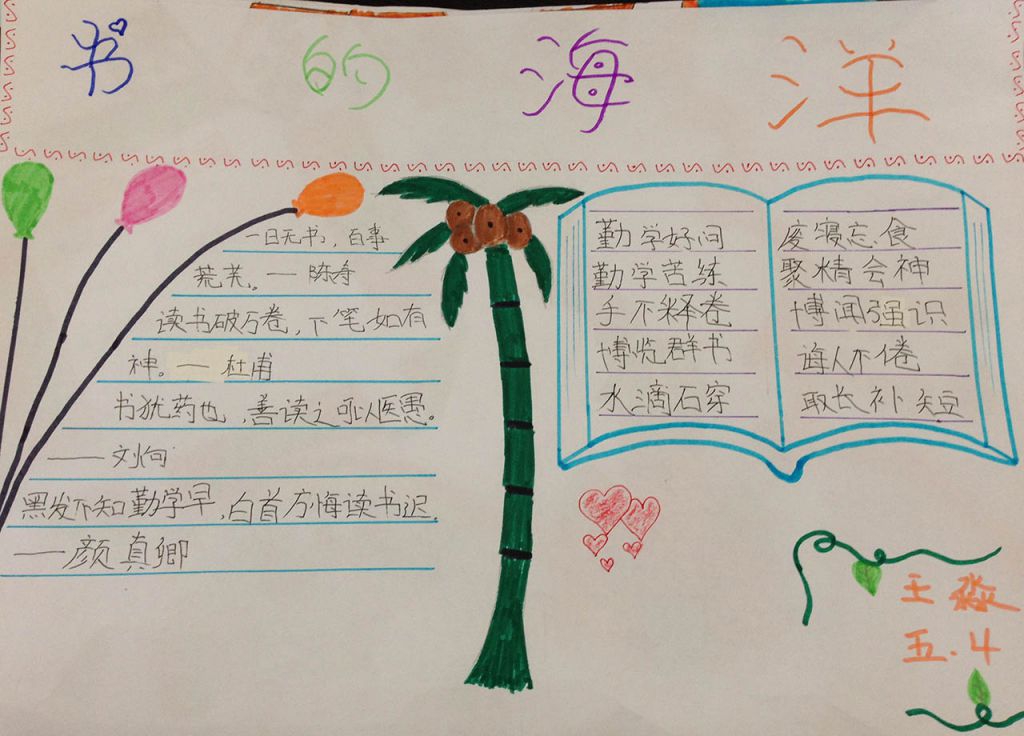 书的海洋
一日无书，百事
荒芜。——陈寿
读书破万卷，下笔如有
神。——杜甫
书犹药也，善读之可以医愚。
——刘向
黑发不知勤学早，白首方悔读书迟。
——颜真卿
勤学好问
勤学苦练
手不释卷
博览群书
水滴石穿
废寝忘食
聚精会神
博闻强识
诲人不倦
取长补短
王淼
五.4